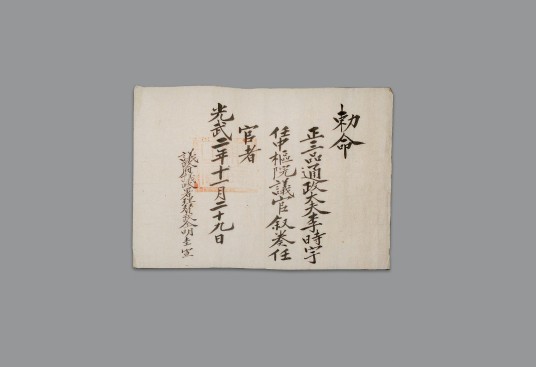 勅命
正三品通政大夫李時宇
任中樞院議官叙奏任
官者
光武二年十一月二十九日
議政府